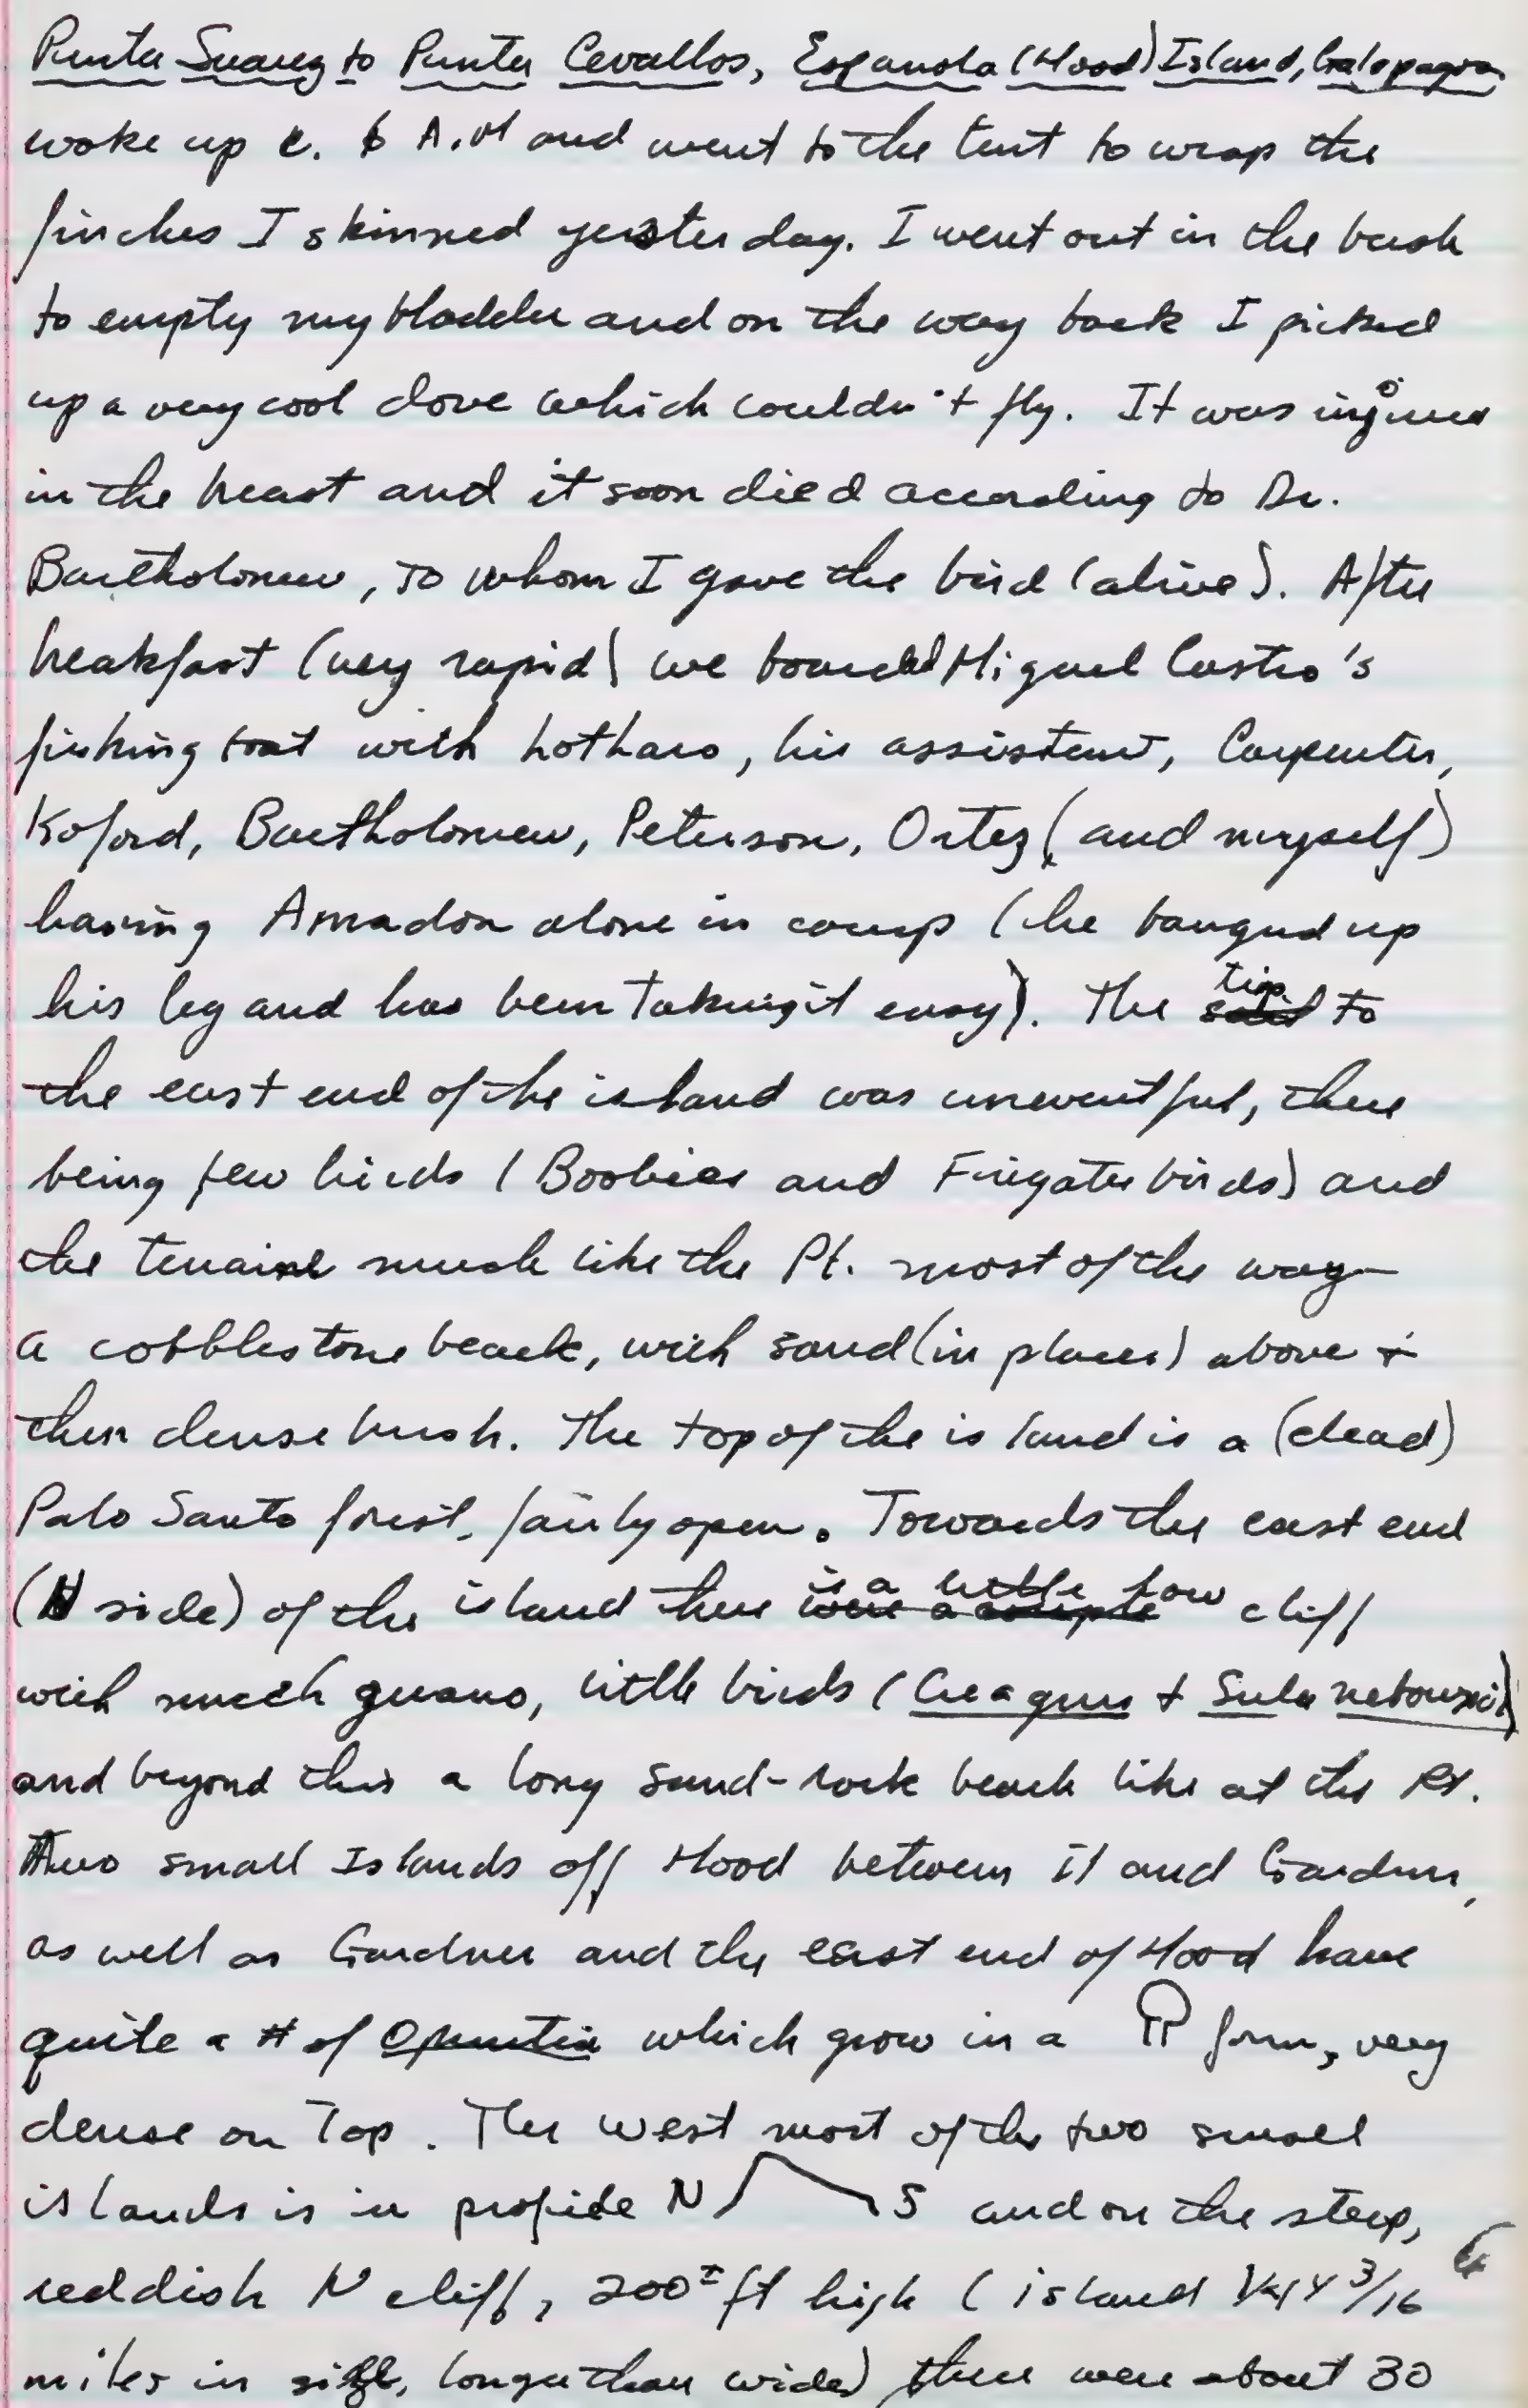 Punta Suarez to Punta Cevallos, Espanola (Hood) Island, Galapagos
woke up c. 6 A.M and went to the tent to wrap the
finches I skinned yesterday. I went out in the bush
to empty my bladder and on the way back I picked
up a very cool dove which couldn't fly. It was injured
in the breast and it soon died according to Dr.
Bartholomew, to whom I gave the bird (alive). After
breakfast (very rapid) we boarded Miguel Castro's
fishing boat with his assistent, Carpenter,
Koford, Bartholomew, Peterson, Ortez (and myself)
leaving Amadon alone in camp (he banged up
his leg and has been taking it easy). The trip to
the east end of the island was uneventful, there
being few birds (Boobies and Frigatebirds) and
the terrain much like the Pt. most of the way—
a cobblestone beach, with sand (in places) above +
then dense brush. The top of the island is a (dead)
Palo Santo forest, fairly open. Towards the east end
(N side) of the island there is a little low cliff
with much guano, little birds (Creagrus + Sula nebouxii)
and beyond this a long sand-rock beach like at the Pt.
Two small Islands off Hood between it and Gardner,
as well as Gardner and the east end of Hood have
quite a # of Opuntia which grow in a form, very
dense on top. The west most of the two small
islands is in profile N S and on the steep,
reddish N cliff, 200± ft high (island 3/16
miles in size, longer than wide) there were about 30